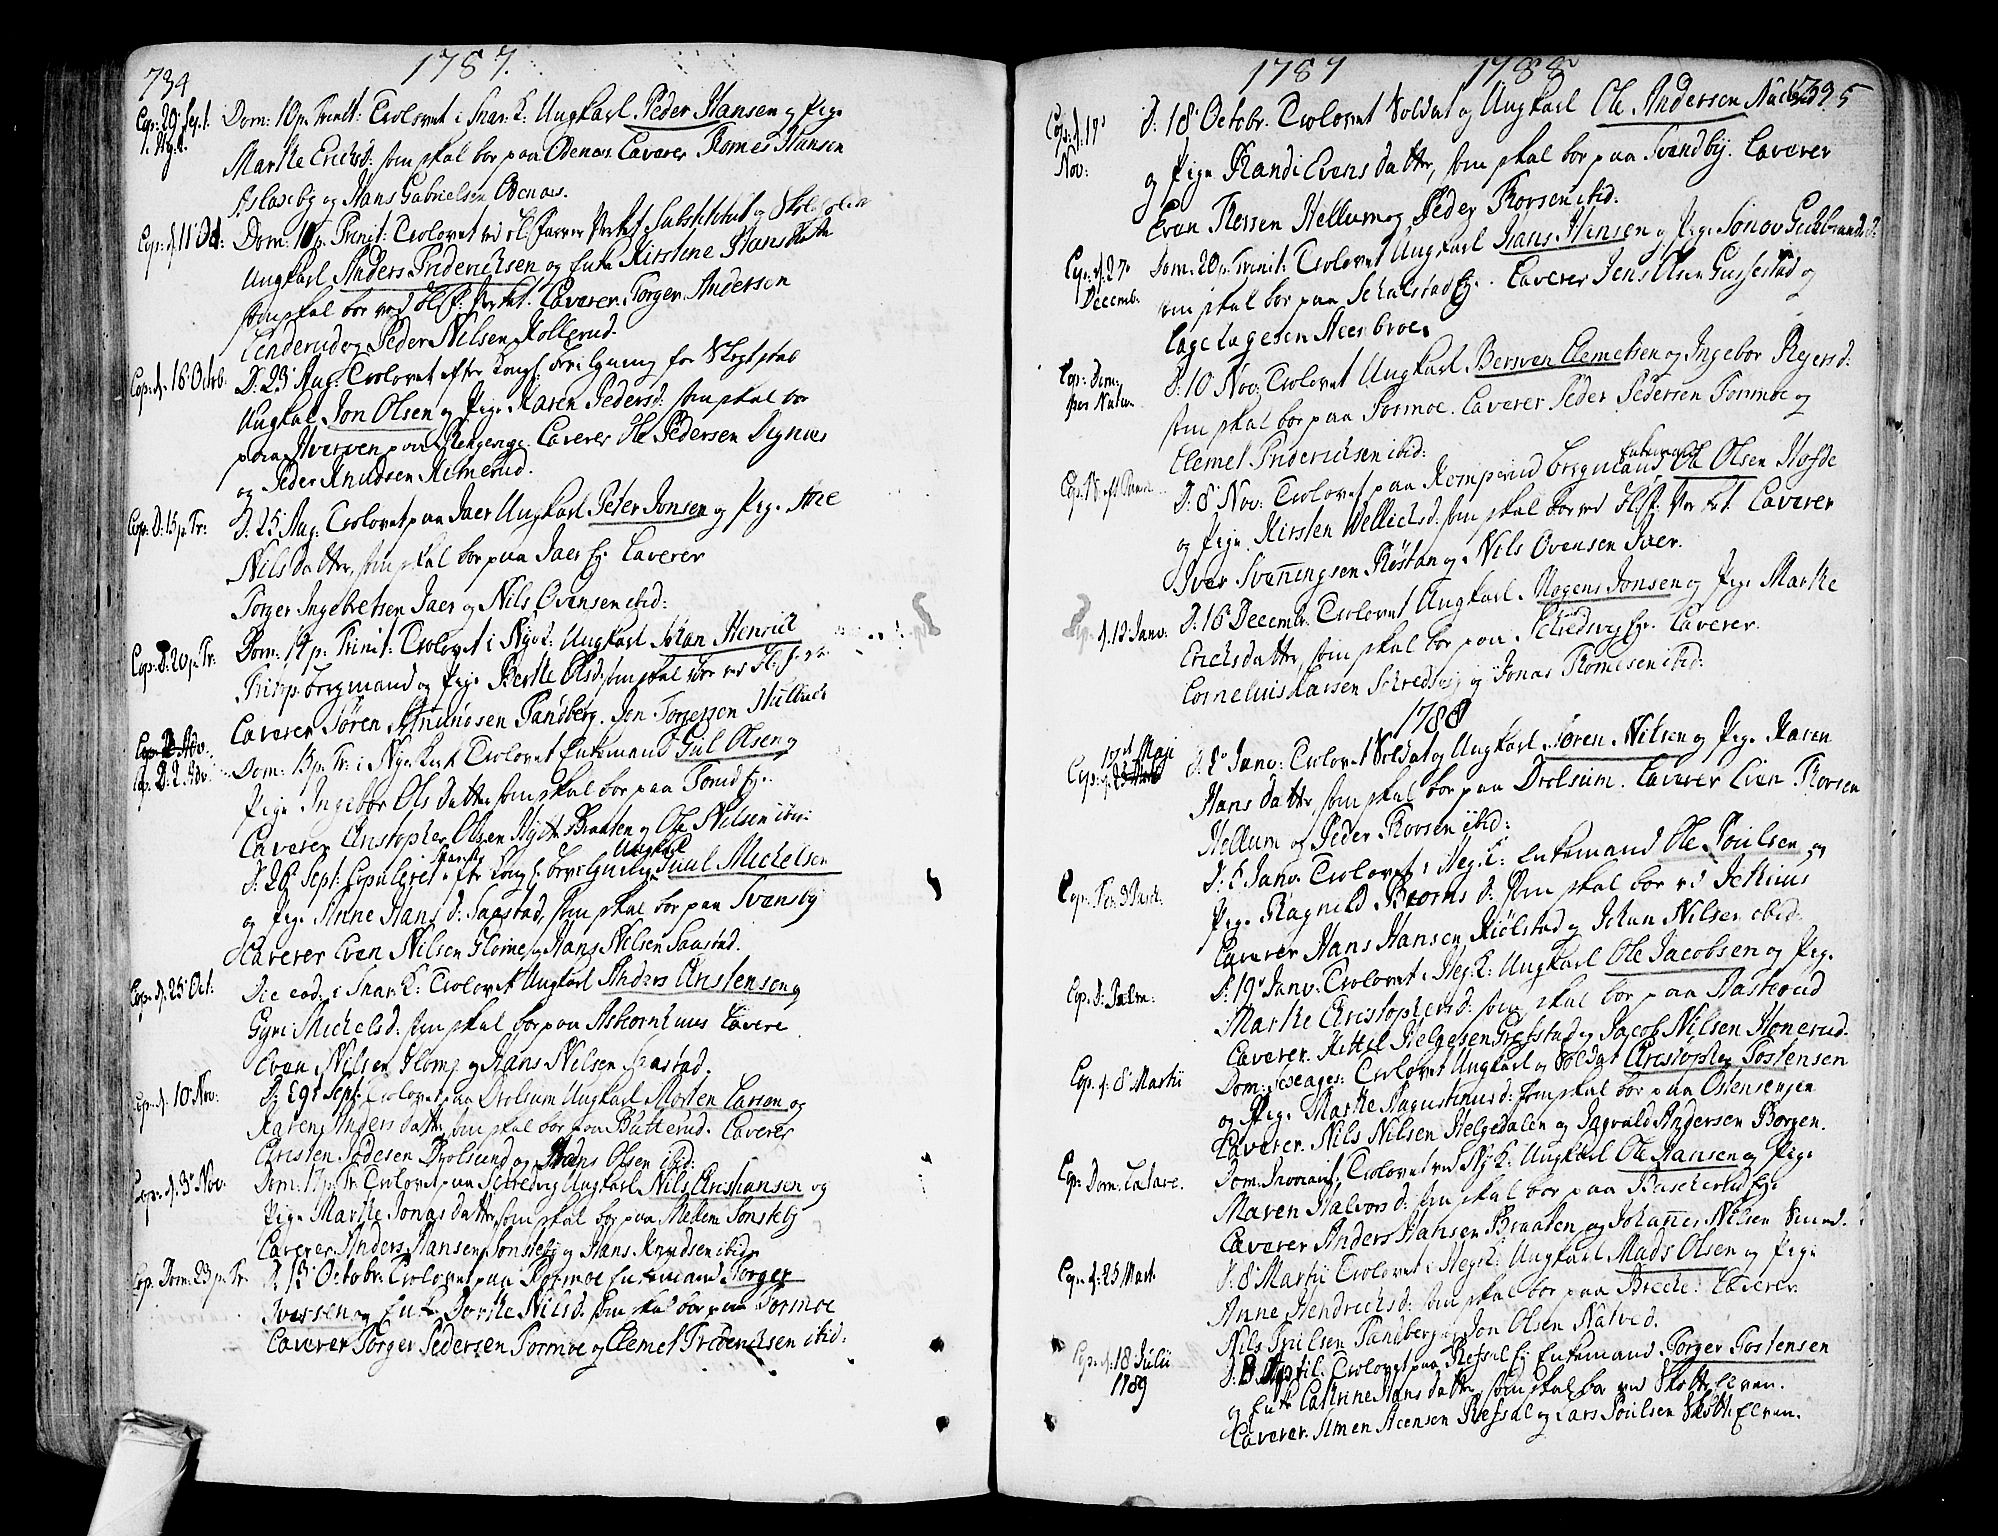 734
1787.
Cop: 29 Sept. Dom: 10 p. Trinit: Trolovet i Snar: K: Ungkarl Peder Hansen og Pige
i Ny K. Marthe Erichsd: som skal boe paa Odenæs. Caverer Tomes Hansen
Aslaxeby og Hans Gabrielsen Odenæs.
Cop: d. 11 Oct: Dom: p. Trinit: Trolovet ved Bl: Farver Verket Substitut og Skoleholder
Ungkarl Anders Friderichsen og Enke Kirstene Hansdatter
som skal boe ved Bl: F: Verket. Caverer Torger Andersen
Lenderud og Peder Nilsen Kollerud.
Cop: d. 16 Octob. D: 23 Aug: Trolovet efter Kongl: Bevilgning for Slegtskab
Ungkal Jon Olsen og Pige Karen Pedersd: som skal boe
paa Hverven paa Ringerige. Caverer Ole Pedersen Dignæs
og Peder Knudsen Kimerud.
Cop: D: 15 p. Tr: D. 25 Aug: Trolovet paa Jaer Ungkarl Peter Jonsen og Pige
Nils datter, som skal boe paa Jaer Ej. Caverer
Torger Ingebretsen Jaer og Nils Ovensen ibid:
Cop: D: 20 p. Tr: Dom: 14 p. Trinit: Trolovet i Ny K: Ungkarl Johan Henrich
bergmand og Pige Berthe Olsd: som skal boe ved Bl: F: V:
Caverer Søren Amundsen Tandberg. Jon Torgersen
Cop: D. Adv.
Cop. D: 2 Adv. Dom: 13 p. Tr: i Nye Kirk Trolovet Enkemand Gul Olsen og
Pige Ingebor Olsdatter som skal boe paa Ej.
Caverer Christopher Olsen Hytte Braaten og Ole Nilsen ibid:
Ungkarl
D: 26 Sept: Copuleret efter Kongl: bevilgning Juul Michelsen
og Pige Anne Hans d: Saastad, som skal boe paa Svensby
Caverer Even Nilsen Glomme og Hans Nilsen Saastad.
Cop: d. 25 Oct: Die eod: i Snar: K: Trolovet Ungkarl Anders Christensen og
Gyri Michelsd: som skal boe paa Askornhuus Cavere
Even Nilsen Glom: og Hans Nilsen Saastad.
Cop: d. 10 Nov: D: 29 Sept: Trolovet paa Drolsum Ungkarl Morten Larsen og
Karen Anders datter som skal boe paa Butterud. Caverer
Christen Drolsund og Olsen ibid:
Cop: d. 3 Nov: Dom: 17 p. Tr: Trolovet paa Skredsvig Ungkarl Nils Christiansen og
Pige Marthe Jonas datter, som skal boe paa Mellem Sonsteby
Caverer Anders Hansen Sonsteby og Hans Knudsen ibid.
Cop: Dom: 23 p. Tr: D. 13 Octobr: Trolovet paa Tormoe Enkemand Torger
Iversen og Enke Dorthe Nilsd: som skal boe paa Tormoe
Caverer Torger Pedersen Tormoe og Clemet Friderichsen ibid:
1787 1788
735
Cop: d. 19 Nov: D: 18 Octobr. Trolovet Soldat og Ungkarl Ole Andersen
og Pige Randi Evens datter, som skal boe paa Svendby. Caverer
Even Thorsen Hellum og Peder Thorsen ibid.
Cop: d. 27 Decemb. Dom: 20 p. Trinit: Trolovet Ungkarl Hans Hansen og Pige Jonov Guldbrandsd:
som skal boe paa Skalstad Ej. Caverer Jens Olsen Gussestad og
Lage Lagesen Steenbroe.
Cop: Dom: post Nativ. D: 10 Nov: Trolovet Ungkarl Bersven Clemetsen og Ingebor Reyersd:
som skal boe paa Tormoe. Caverer Peder Pedersen Tormoe og
Clemet Friderichsen ibid:
Enkemand
D: 8 Nov: Trolovet paa Komperud bergmand Ole Olsen Hofde
og Pige Kirsten Wellichsd: som skal boe ved Bl: F: Verket. Caverer
Iver Svenningsen Røstan og Nils Ovensen Jaer.
Cop: d. 12 Janv: D: 16 Decembr. Trolovet Ungkarl Mogens Jonsen og Pige Marthe
Erichs datter, som skal boe paa Skredsvig Ej. Caverer
Cornelius Larsen Skredsvig og Jonas Thomesen ibid:
1788
Cop: 13 Maji D: 1 Janv: Trolovet Soldat og Ungkarl Søren Nilsen og Pige Karen
Hans datter som skal boe paa Drolsum. Caverer Even Thorsen
Hellum og Peder Thorsen ibid:
Cop: Fer: 3 Pasch. D: Janv: Trolovet i Heg: K: Enkemand Ole Poulsen og
Pige Ragnild Biørns d: som skal boe ved
Caverer Hans Hansen Kiølstad og Johan Nilsen ibid:
Cop: D: Palm: D: 19 Janv: Trolovet i Heg: K: Ungkarl Ole Jacobsen og Pige
Marthe Christophersd: som skal boe paa Aasterud
Caverer. Kittel Helgesen Grefstad og Jacob Nilsen Honerud.
Cop: d: 8 Martii Dom: Sexages: Trolovet Ungkarl og Soldat Christopher Tostensen
og Pige Marthe Augustinus d: som skal boe paa Ostensengen
Caverer. Nils Nilsen Helgedalen og Ingvald Andersen Borgen.
Cop: Dom: Lætare. Dom: Invocavit Trolovet ved Ny K: Ungkarl Ole Hansen og Pige
Maren Halvors d: som skal boe paa Baskerud Ej.
Caverer Anders Hansen Braaten, og Johannes Nilsen
Cop: d: 25 Mart. D: 8 Martii Trolovet i Heg: K: Ungkarl Mads Olsen og Pige
Anne Hendrichsd: som skal boe paa Breche. Caverer
Nils Tandberg og Jon Olsen Natved.
Cop: d. 18 Julii 1789 D: 8 April: Trolovet paa Refsal Ej Enkemand Torger Tostensen
og Enke Cathrine Hans datter, som skal boe ved Skotte Elven.
Caverer. Simen Steensen Refsal og Lars Poulsen Skotte Elven.